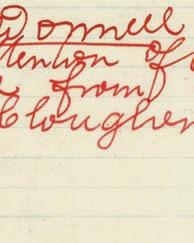 Donnell
ttention of
from
Cloughen